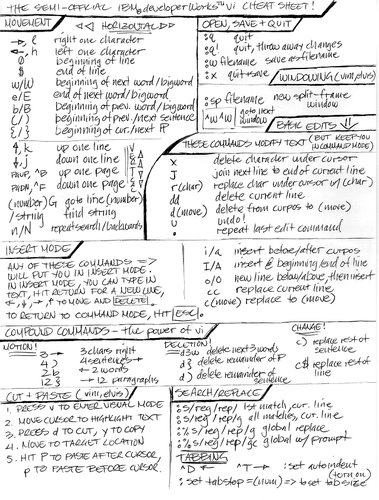 THE SEMI-OFFICIAL IBM developerWorks™ vi CHEAT SHEET!
MOVEMENT
HORIZONTAL
→, l right one character
←, h left one character
0 beginning of line
$ end of line
w/W beginning of next word/bigword
e/E end of next word/bigword
b/B beginning of prev. word/bigword
(/) beginning of prev./next sentence
{/} beginning of cur./next P
↑, k up one line
↓, j down one line
PGUP, ^B up one page
PGDN, ^F down one page
(number)G goto line (number)
/string find string
n/N repeat search/backwards
OPEN, SAVE + QUIT
:q quit
:q! quit, throw away changes
:w filename save as filename
:x quit + save
WINDOWING (vim, elvis)
:sp filename new split-frame window
^W ^W goto next window
BASIC EDITS
THESE COMMANDS MODIFY TEXT (BUT KEEP YOU IN COMMAND MODE)
x delete character under cursor
J join next line to end of current line
r(char) replace char under cursor w/(char)
dd delete current line
d(move) delete from curpos to (move)
u undo!
. repeat last edit command
INSERT MODE
ANY OF THESE COMMANDS =>
WILL PUT YOU IN INSERT MODE.
IN INSERT MODE, YOU CAN TYPE IN
TEXT, HIT RETURN FOR A NEW LINE,
←, ↓, →, ↑ TO MOVE AND DELETE.
TO RETURN TO COMMAND MODE, HIT ESC.
i/a insert before/after curpos
I/A insert @ beginning/end of line
o/O new line below/above, then insert
cc replace current line
c(move) replace to (move)
COMPOUND COMMANDS - the power of vi
MOTION!
3→ 3 chars right
4) 4 sentences →
2b ← 2 words
12} → 12 paragraphs
DELETION!
d3w delete next 3 words
d} delete remainder of P
d) delete remainder of sentence
CHANGE!
c) replace rest of sentence
c$ replace rest of line
CUT + PASTE (vim, elvis)
1. PRESS v TO ENTER VISUAL MODE
2. MOVE CURSOR TO HIGHLIGHT TEXT
3. PRESS d TO CUT, y TO COPY
4. MOVE TO TARGET LOCATION
5. HIT P TO PASTE AFTER CURSOR,
P TO PASTE BEFORE CURSOR.
SEARCH/REPLACE
:s/reg/rep/ 1st match, cur. line
:s/reg/rep/g all matches, cur. line
:%s/reg/rep/g global replace
:%s/reg/rep/gc global w/ prompt
TABBING
^D ← ^T → :set autoindent (turn on)
:set tabstop=(num) => set tab size